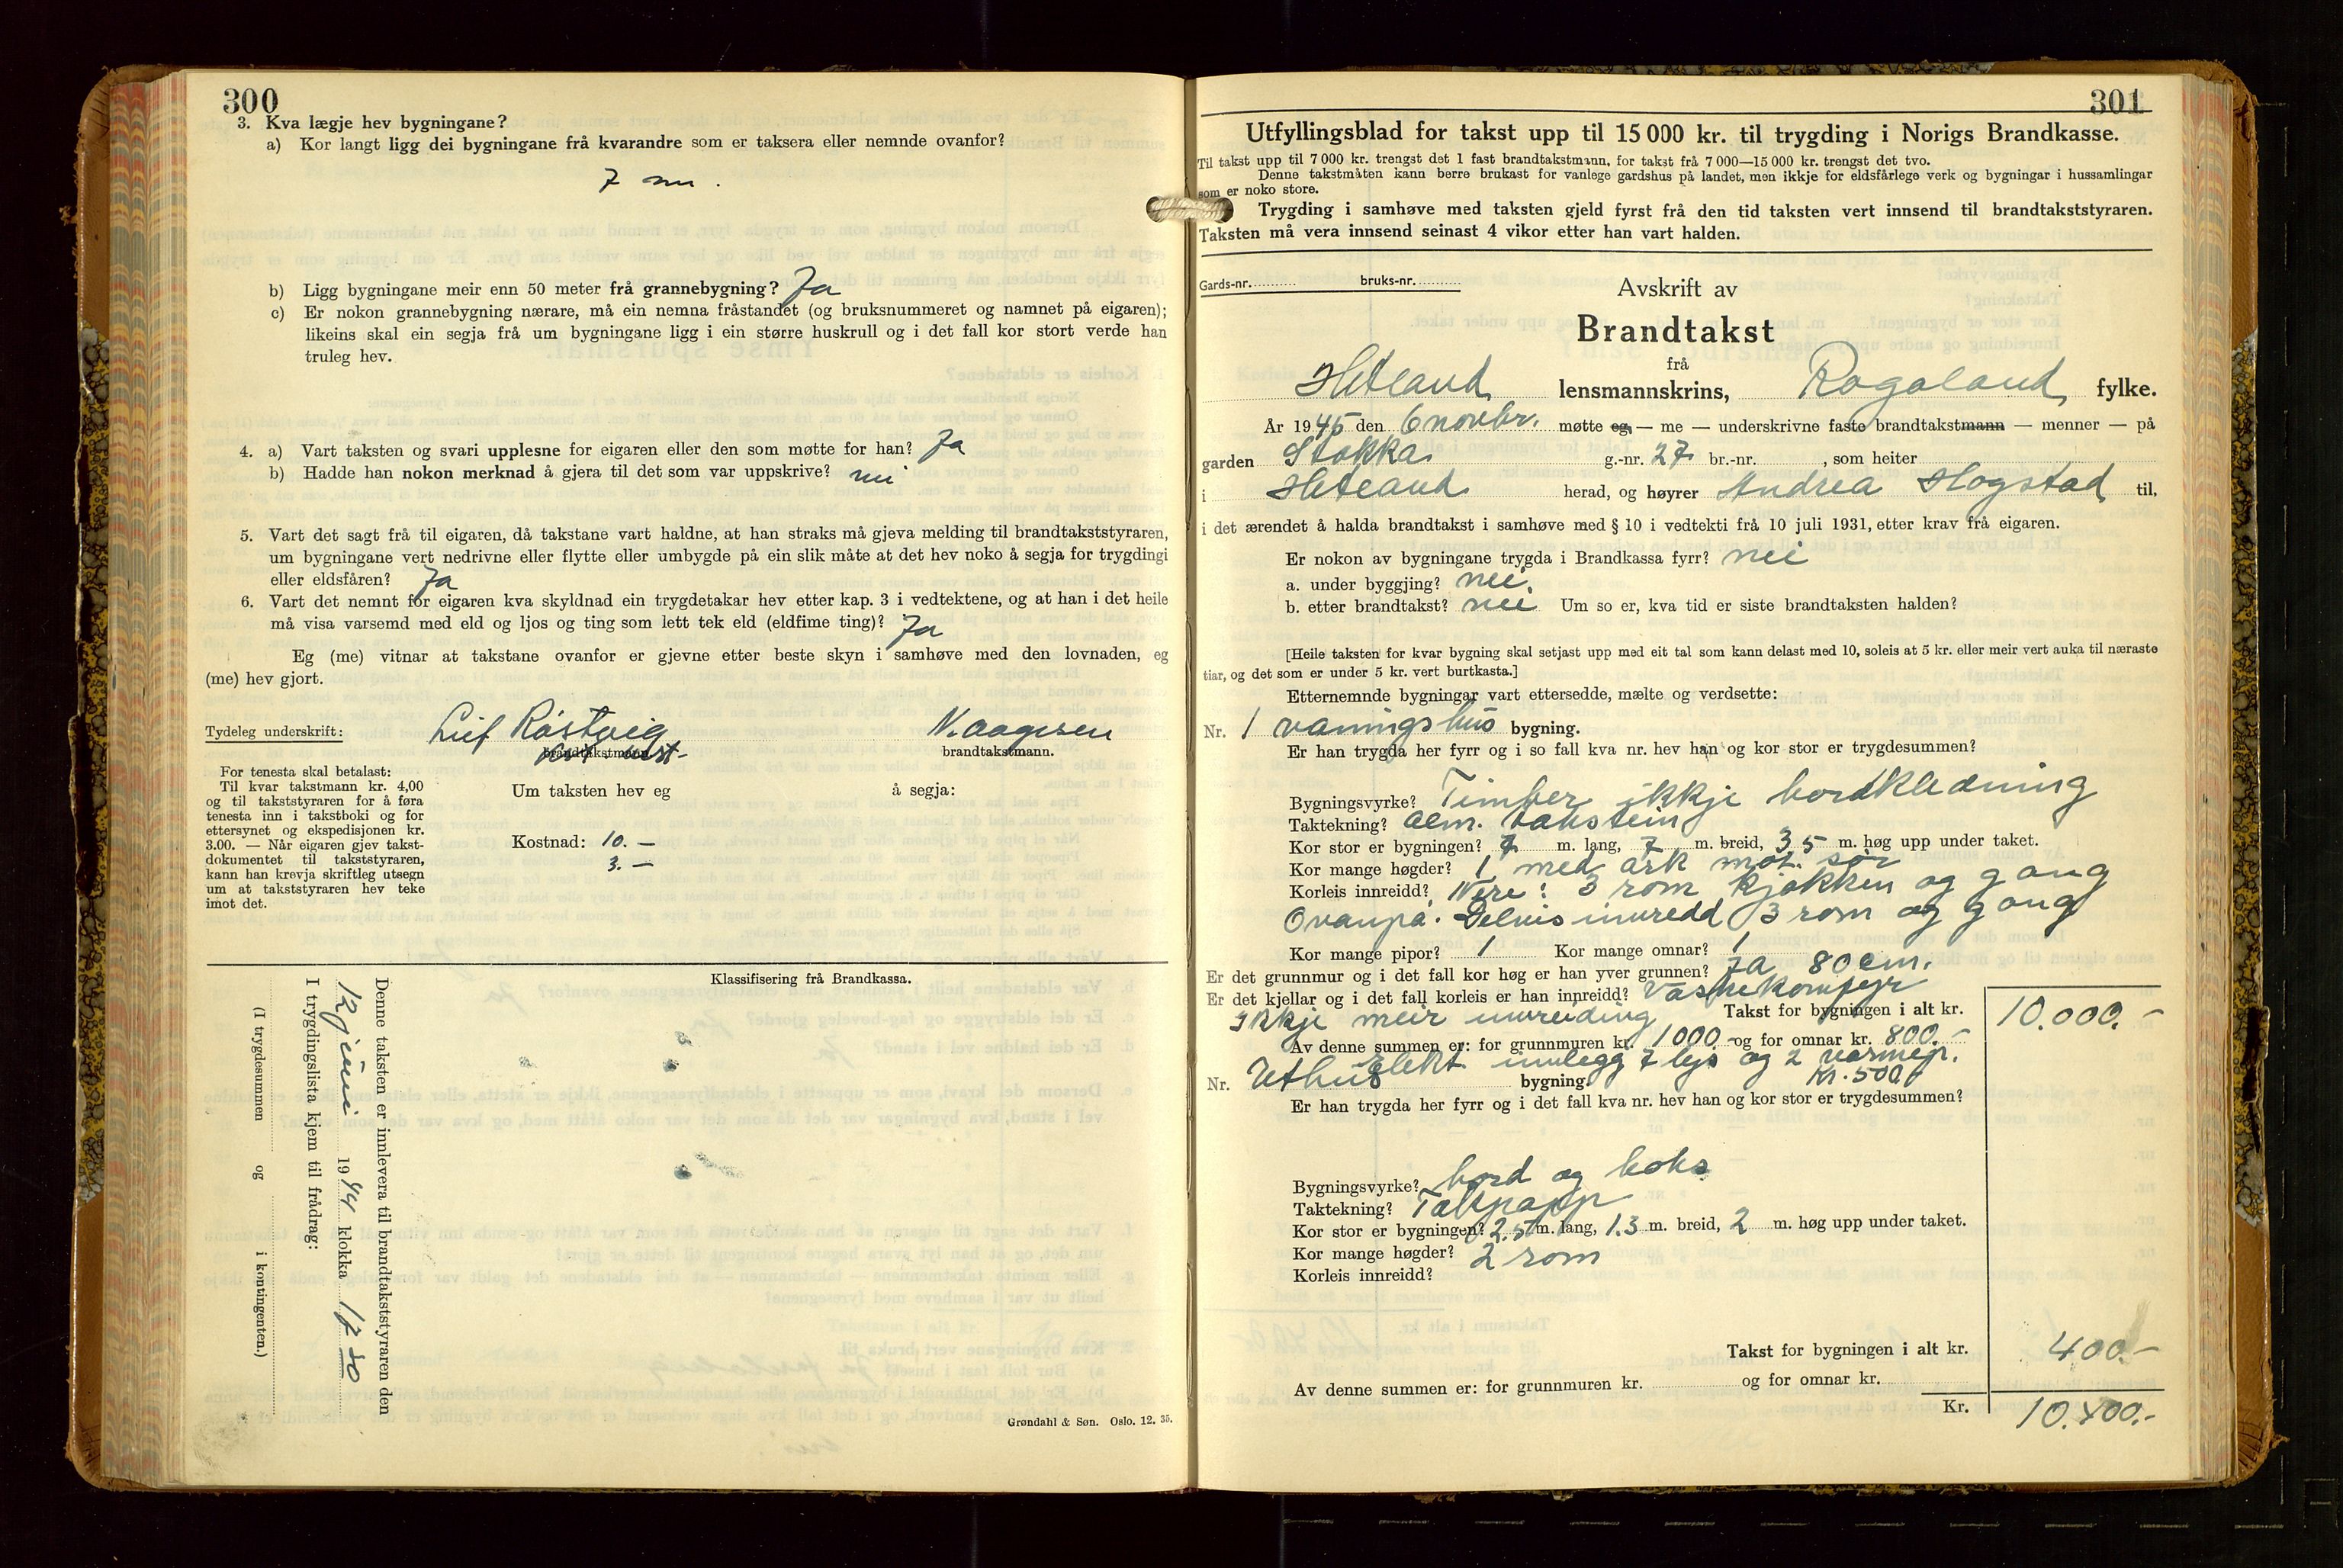 300
3. Kva lægje hev bygningane?
a) Kor langt ligg dei bygningane frå kvarandre som er taksera eller nemnde ovanfor?
7 m.
b) Ligg bygningane meir enn 50 meter frå grannebygning? Ja
c) Er nokon grannebygning nærare, må ein nemna fråstandet (og bruksnummeret og namnet på eigaren);
likeins skal ein segja frå um bygningane ligg i ein større huskrull og i det fall kor stort verde han
truleg hev.
4. a) Vart taksten og svari upplesne for eigaren eller den som møtte for han? Ja
b) Hadde han nokon merknad å gjera til det som var uppskrive? nei
5. Vart det sagt frå til eigaren, då takstane vart haldne, at han straks må gjeva melding til brandtakststyraren,
um bygningane vert nedrivne eller flytte eller umbygde på ein slik måte at det hev noko å segja for trygdingi
eller eldsfåren? Ja
6. Vart det nemnt for eigaren kva skyldnad ein trygdetakar hev etter kap. 3 i vedtektene, og at han i det heile
må visa varsemd med eld og ljos og ting som lett tek eld (eldfime ting)? Ja
Eg (me) vitnar at takstane ovanfor er gjevne etter beste skyn i samhøve med den lovnaden, eg
(me) hev gjort.
Tydeleg underskrift: Leif Rostvig N. Aagesen
brandtakstmann. brandtakstmann.
For tenesta skal betalast:
Til kvar takstmann kr. 4,00
og til takststyraren for å føra
tenesta inn i takstboki og for
ettersynet og ekspedisjonen kr.
3.00. — Når eigaren gjev takst-
dokumentet til takststyraren,
kann han krevja skriftleg utsegn
um at takststyraren hev teke
imot det.
Um taksten hev eg å segja:
Kostnad: 10. —
3. —
Klassifisering frå Brandkassa.
Denne taksten er innlevera til brandtakststyraren den
12 juni 1944 klokka 12 30
I trygdingslista kjem til frådrag:
(I trygdesummen og i kontingenten.)
Grøndahl & Søn. Oslo. 12. 35.
301
Utfyllingsblad for takst upp til 15 000 kr. til trygding i Norigs Brandkasse.
Til takst upp til 7 000 kr. trengst det 1 fast brandtakstmann, for takst frå 7 000—15 000 kr. trengst det tvo.
Denne takstmåten kann berre brukast for vanlege gardshus på landet, men ikkje for eldsfårlege verk og bygningar i hussamlingar
som er noko store.
Trygding i samhøve med taksten gjeld fyrst frå den tid taksten vert innsend til brandtakststyraren.
Taksten må vera innsend seinast 4 vikor etter han vart halden.
Gards-nr. bruks-nr.
Avskrift av
Brandtakst
frå
Hetland lensmannskrins, Rogaland fylke.
År 1945 den 6 novbr. møtte eg — me — underskrivne faste brandtakstmann — menner — på
garden Stokka g.-nr. 27 br.-nr. , som heiter
i Hetland herad, og høyrer Andrea Hogstad til,
i det ærendet å halda brandtakst i samhøve med § 10 i vedtekti frå 10 juli 1931, etter krav frå eigaren.
Er nokon av bygningane trygda i Brandkassa fyrr? nei
a. under byggjing? nei.
b. etter brandtakst? nei Um so er, kva tid er siste brandtaksten halden?
[Heile taksten for kvar bygning skal setjast upp med eit tal som kann delast med 10, soleis at 5 kr. eller meir vert auka til næraste
tiar, og det som er under 5 kr. vert burtkasta.]
Etternemnde bygningar vart ettersedde, mælte og verdsette:
Nr. 1 vaningshus bygning.
Er han trygda her fyrr og i so fall kva nr. hev han og kor stor er trygdesummen?
Bygningsvyrke? Timber ikkje bordkledning
Taktekning? alm. takstein
Kor stor er bygningen? 7 m. lang, 7 m. breid, 3,5 m. høg upp under taket.
Kor mange høgder? 1 med ark mot sør
Korleis innreidd? Nere: 3 rom kjøkken og gang
Ovanpå. Delvis innredd 3 rom og gang
Kor mange pipor? 1 Kor mange omnar? 1
Er det grunnmur og i det fall kor høg er han yver grunnen? Ja 80 cm.
Er det kjellar og i det fall korleis er han innreidd? Vaskekomfyr
Ikkje meir innreiding Takst for bygningen i alt kr. 10.000.-
Av denne summen er: for grunnmuren kr. 1000 og for omnar kr. 800.-
Elekt. innlegg 7 ljs og 2 varmep.
Nr. Uthus bygning Kr. 500
Er han trygda her fyrr og i det fall kva nr. hev han og kor stor er trygdesummen?
Bygningsvyrke? bord og boks
Taktekning? Takpapp
Kor stor er bygningen? 2.5 m. lang, 1.3 m. breid, 2 m. høg upp under taket.
Kor mange høgder? 2 rom
Korleis innreidd?
Takst for bygningen i alt kr. 400.-
Av denne summen er: for grunnmuren kr. og for omnar kr.
Kr. 10.400.-